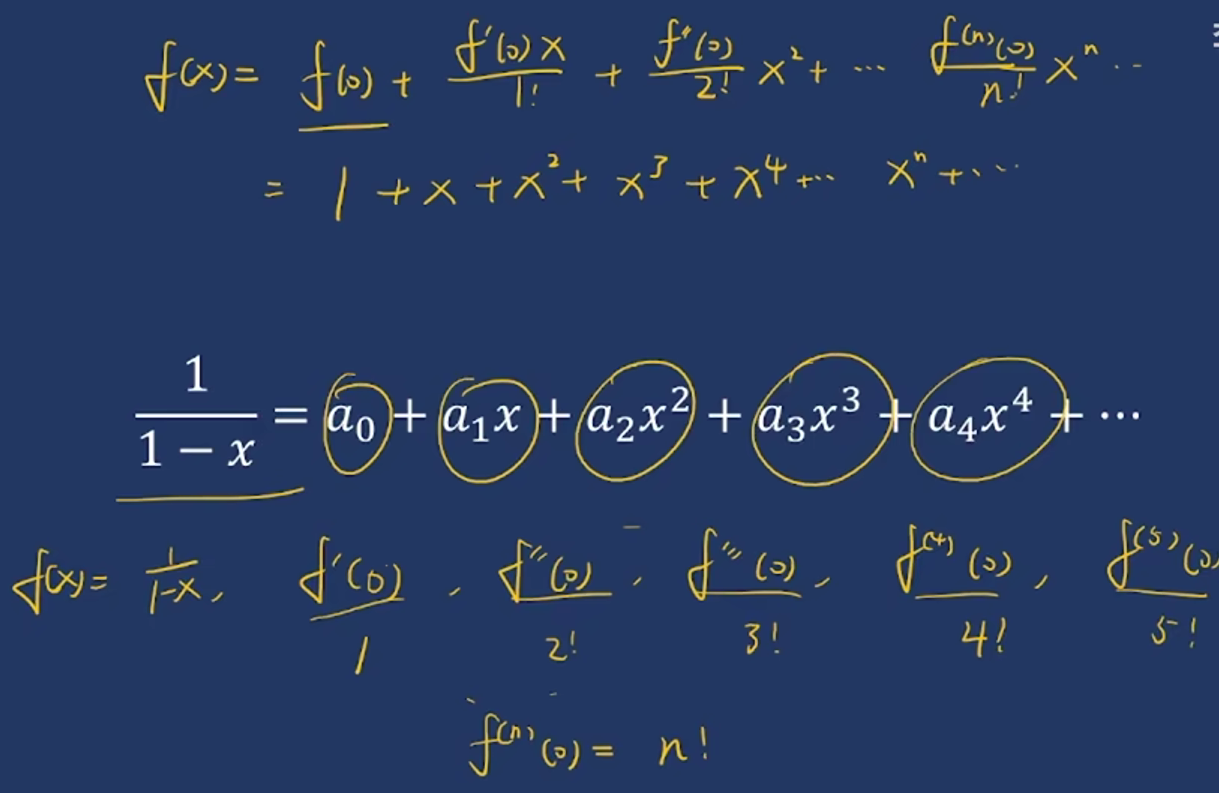 f(x) = f(0) + f'(0)x/1! + f''(0)/2! x² + ··· f⁽ⁿ⁾(0)/n! xⁿ ··
= 1 + x + x² + x³ + x⁴ + ··· xⁿ + ···
1/(1 − x) = a₀ + a₁x + a₂x² + a₃x³ + a₄x⁴ + ⋯
f(x) = 1/(1-x), f'(0)/1, f''(0)/2!, f'''(0)/3!, f⁽⁴⁾(0)/4!, f⁽⁵⁾(0)/5!
f⁽ⁿ⁾(0) = n!